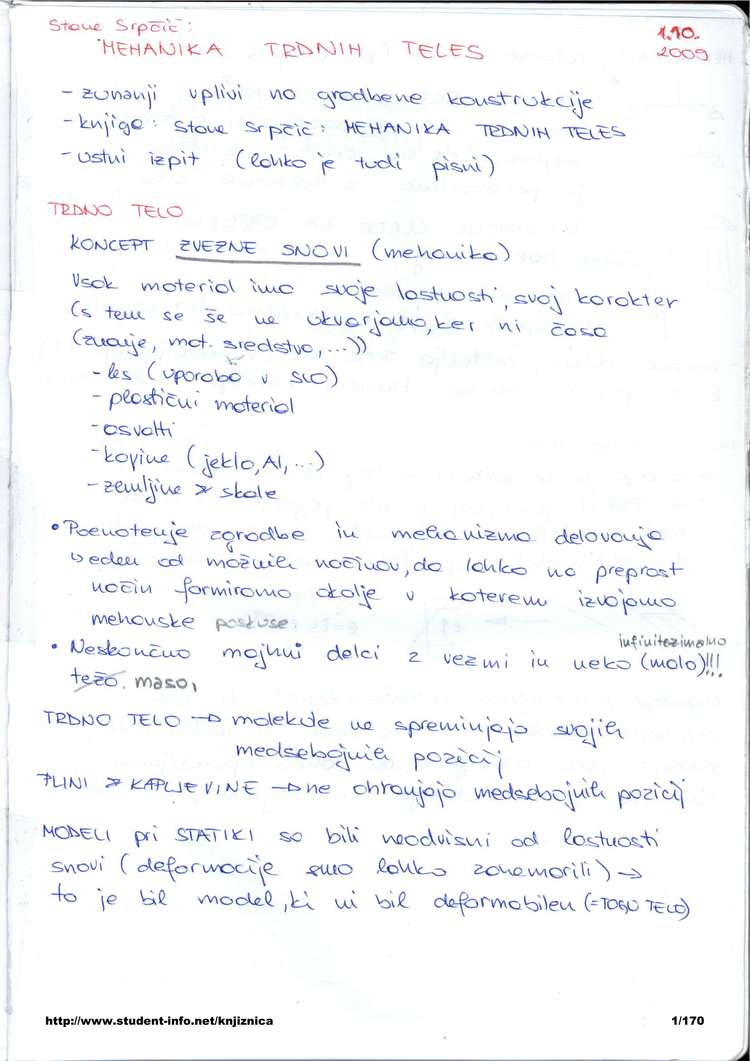 Stane Srpčič:
MEHANIKA TRDNIH TELES
1.10.
2009
- zunanji vplivi na gradbene konstrukcije
- knjige: Stane Srpčič: MEHANIKA TRDNIH TELES
- ustni izpit (lahko je tudi pisni)
TRDNO TELO
KONCEPT ZVEZNE SNOVI (mehanika)
Vsak material ima svoje lastnosti, svoj karakter
(s tem se še ne ukvarjamo, ker ni časa
(znanje, mat. sredstva, ...))
- les (uporaba v SLO)
- plastični material
- asvalti
- kovine (jeklo, Al, ...)
- zemljine & skale
• Poenotenje zgradbe in mehanizma delovanja
↳ eden od možnih načinov, da lahko na preprost
način formiramo okolje v katerem izvajamo
mehanske poskuse.
infinitezimalno
• Neskončno majhni delci z vezmi in neko (malo)!!!
težo. maso,
TRDNO TELO → molekule ne spreminjajo svojih
medsebojnih pozicij
PLINI & KAPLJEVINE → ne ohranjajo medsebojnih pozicij
MODELI pri STATIKI so bili neodvisni od lastnosti
snovi (deformacije smo lahko zanemarili) →
to je bil model, ki ni bil deformabilen (=TOGO TELO)
http://www.student-info.net/knjiznica
1/170